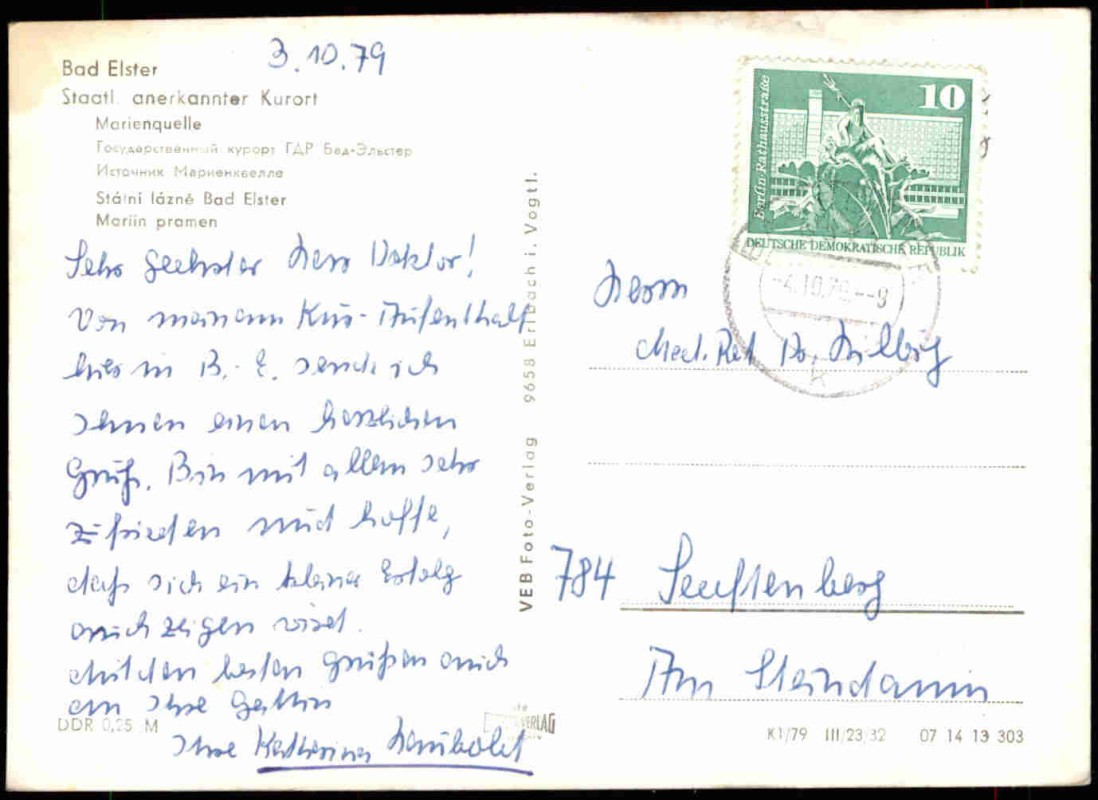 3.10.79
Bad Elster
Staatl. anerkannter Kurort
Marienquelle
Государственный курорт ГДР Бад-Эльстер
Источник Мариенквелле
Státní lázně Bad Elster
Mariin pramen
Sehr geehrter Herr Doktor!
Von meinem Kur-Aufenthalt
hier in B.-E. sende ich
Ihnen einen herzlichen
Gruß. Bin mit allem sehr
zufrieden und hoffe,
daß sich ein kleiner Erfolg
auch zeigen wird.
Mit den besten Grüßen auch
an Ihre Gattin
Ihre Katharina
DDR 0,25 M
VERLAG
VEB Foto-Verlag 9658 Erlbach i. Vogtl.
10
Berlin·Rathausstraße
DEUTSCHE DEMOKRATISCHE REPUBLIK
-4.10.79.--9
k
Herrn
Med. Rat Dr.
784 Senftenberg
Am Steindamm
K1/79 III/23/32 07 14 13 303